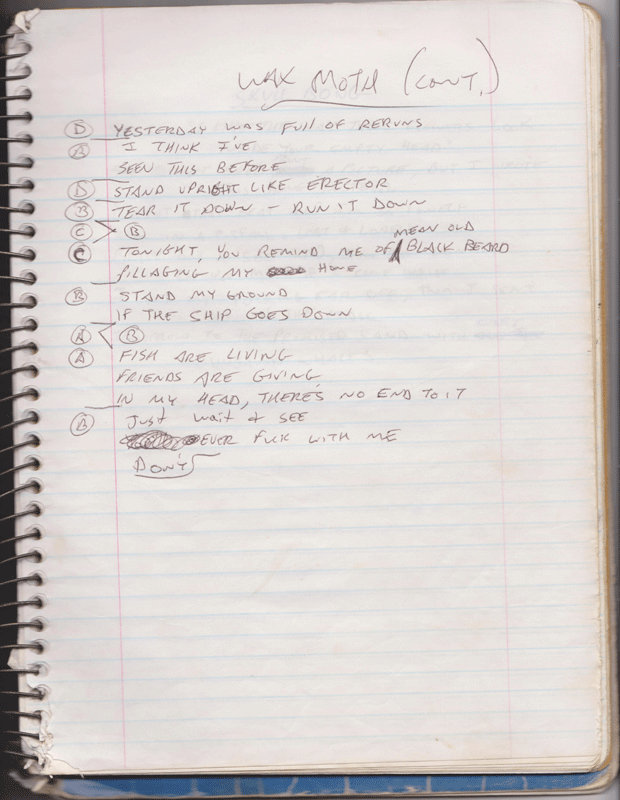 WAX MOTH (CONT.)
D YESTERDAY WAS FULL OF RERUNS
A I THINK I'VE
SEEN THIS BEFORE
D STAND UPRIGHT LIKE ERECTOR
B TEAR IT DOWN - RUN IT DOWN
C > B
MEAN OLD
C TONIGHT, YOU REMIND ME OF BLACK BEARD
PILLAGING MY HOME
B STAND MY GROUND
IF THE SHIP GOES DOWN
A < B
A FISH ARE LIVING
FRIENDS ARE GIVING
IN MY HEAD, THERE'S NO END TO IT
B JUST WAIT & SEE
EVER FUCK WITH ME
DON'T